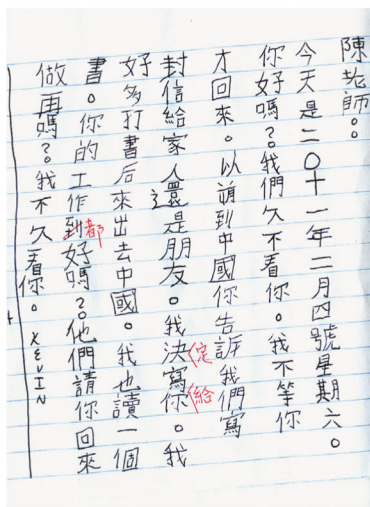 陳老師：
今天是二〇十一年二月四號星期六。
你好嗎？我們久不看你。我不等你
才回來。以前到中國你告訴我們寫
封信給家人還是朋友。我決定寫給你。我
好多打書后來出去中國。我也讀一個
書。你的工作到都好嗎？他們請你回來
做再嗎？我不久看你。KEVIN